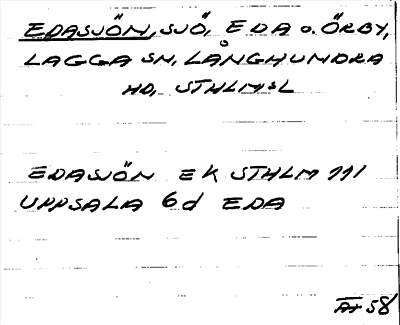 EDASJÖN, SJÖ, EDA o. ÖRBY,
LAGGA SN, LÅNGHUNDRA
HD, STHLMS L
EDASJÖN EK STHLM 111
UPPSALA 6d EDA
58